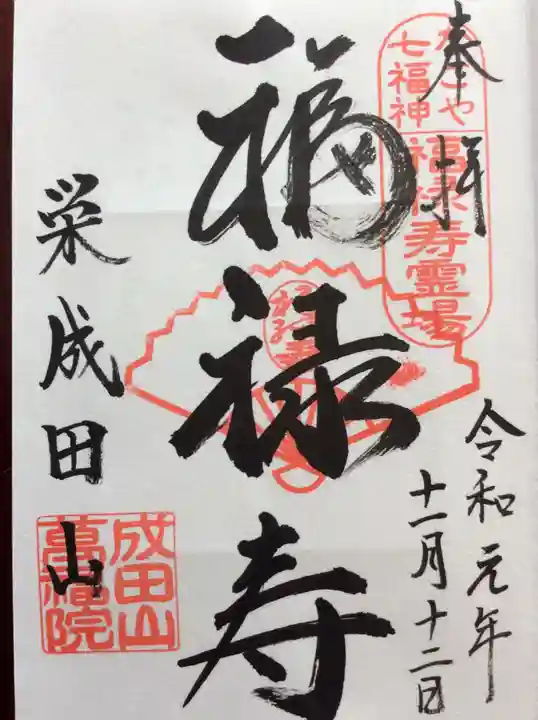 奉拝
なごや
七福神
福禄寿霊場
令和元年
十一月十二日
福禄寿
栄成田山
成田山
萬福院